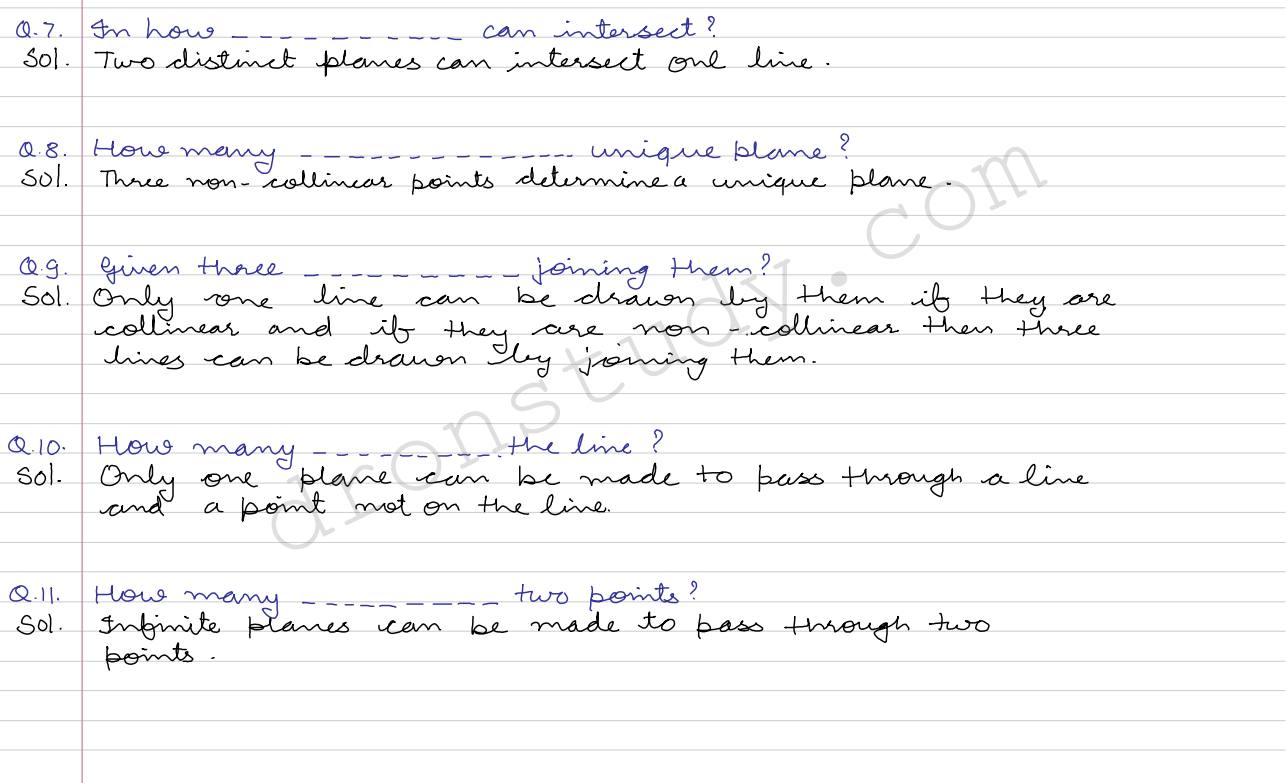 Q.7. In how ----------- can intersect?
Sol. Two distinct planes can intersect one line.
Q.8. How many -------------- unique plane?
Sol. Three non-collinear points determine a unique plane.
Q.9. Given three ---------- joining them?
Sol. Only one line can be drawn by them if they are
collinear and if they are non-collinear then three
lines can be drawn by joining them.
Q.10. How many ---------- the line?
Sol. Only one plane can be made to pass through a line
and a point not on the line.
Q.11. How many ---------- two points?
Sol. Infinite planes can be made to pass through two
points.
dronstudy.com